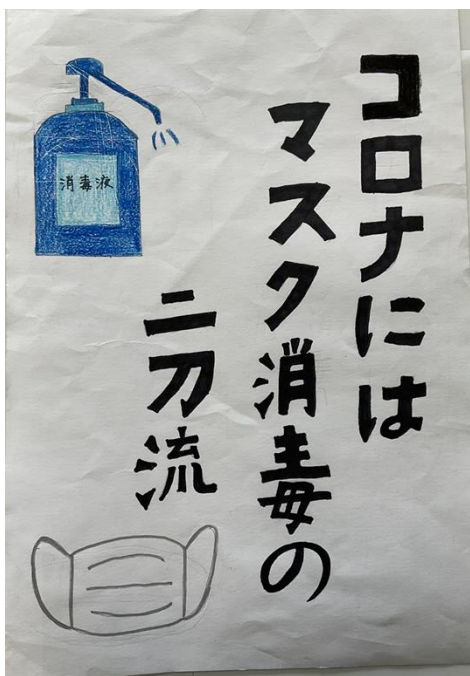 コロナには
マスク消毒の
二刀流
消毒液